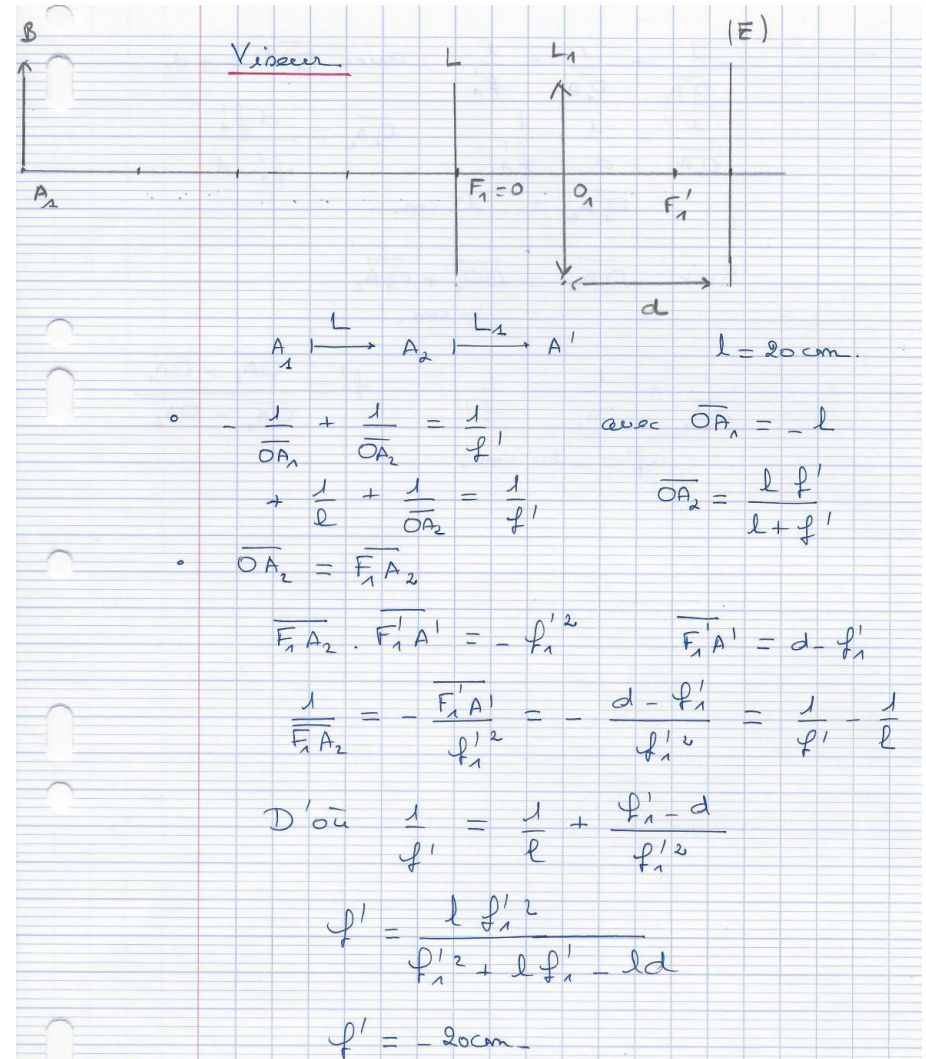 B Viseur L L₁ (E)
A₁ F₁ = O O₁ F₁'
d
A₁ |—L→ A₂ |—L₁→ A' l = 20 cm.
• - 1/OA₁ + 1/OA₂ = 1/f' avec OA₁ = - l
+ 1/l + 1/OA₂ = 1/f' OA₂ = l f' / l + f'
• OA₂ = F₁A₂
F₁A₂ . F₁'A' = - f₁'² F₁'A' = d - f₁'
1/F₁A₂ = - F₁'A'/f₁'² = - d - f₁'/f₁'² = 1/f' - 1/l
D'où 1/f' = 1/l + f₁' - d/f₁'²
f' = l f₁'² / f₁'² + l f₁' - ld
f' = - 20cm -